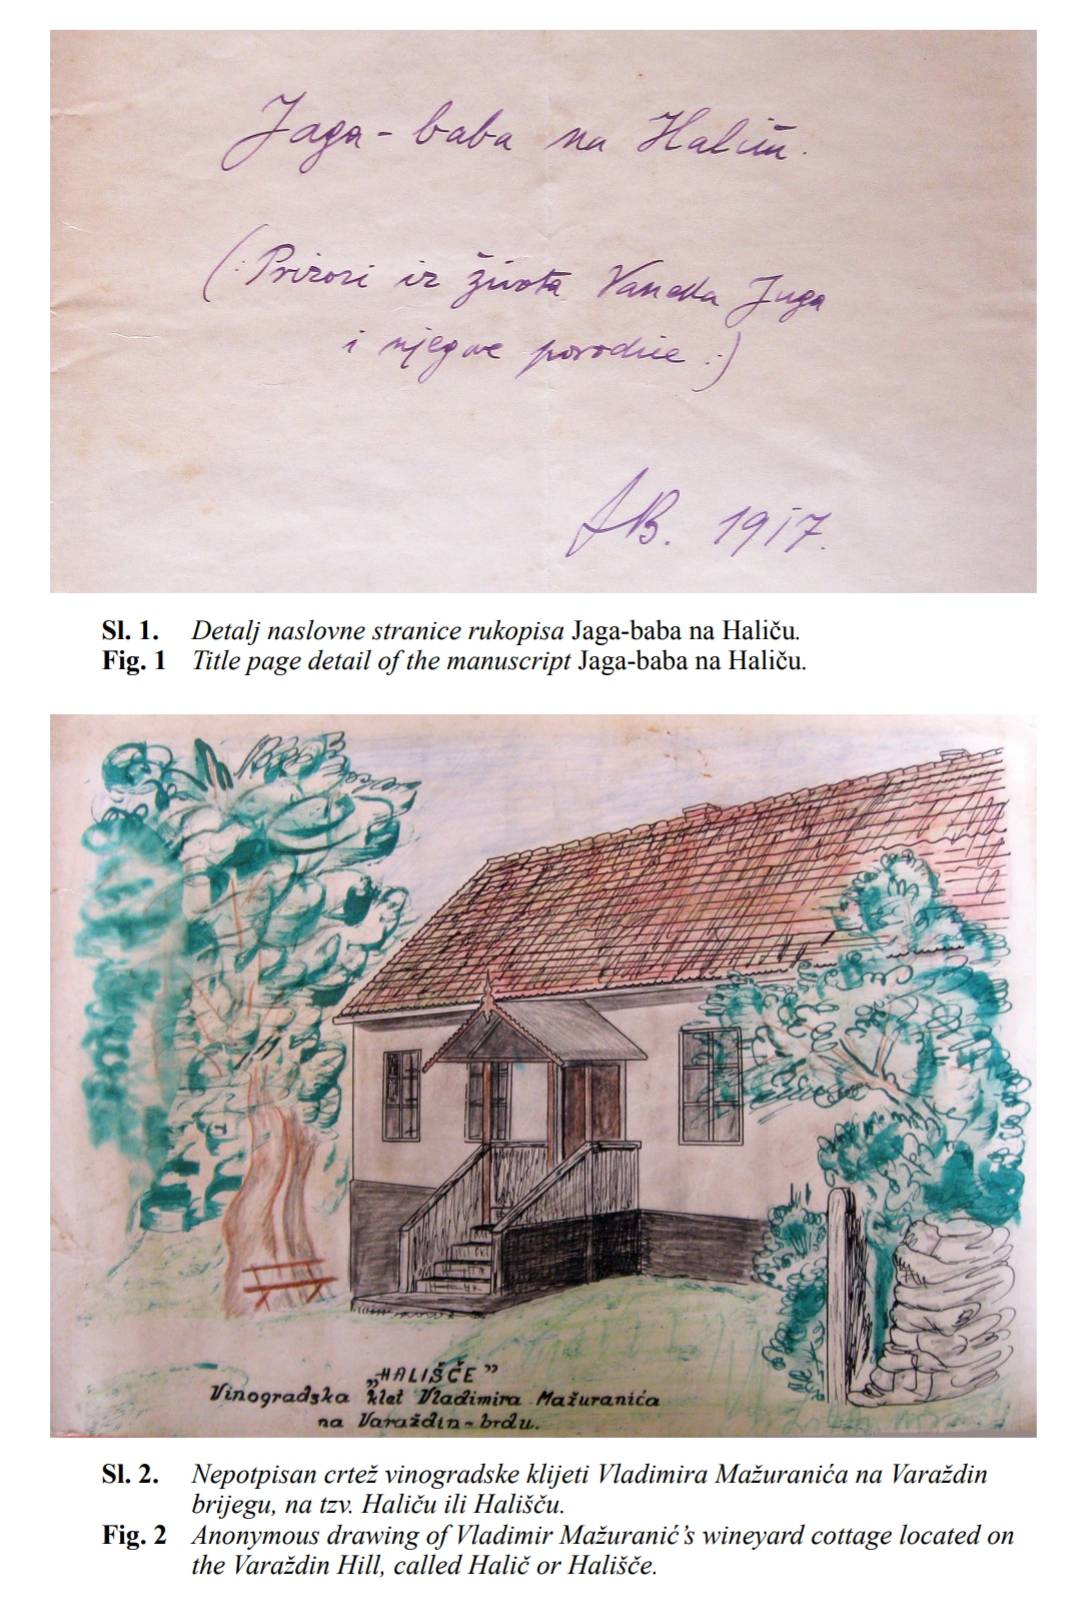 Jaga-baba na Haliču.
(: Prizori iz života Vaneka Juga
i njegove porodice :)
IB. 1917.
Sl. 1. Detalj naslovne stranice rukopisa Jaga-baba na Haliču.
Fig. 1 Title page detail of the manuscript Jaga-baba na Haliču.
„HALIŠČE”
Vinogradska klet Vladimira Mažuranića
na Varaždin-brdu.
Sl. 2. Nepotpisan crtež vinogradske klijeti Vladimira Mažuranića na Varaždin
brijegu, na tzv. Haliču ili Hališču.
Fig. 2 Anonymous drawing of Vladimir Mažuranić’s wineyard cottage located on
the Varaždin Hill, called Halič or Hališče.